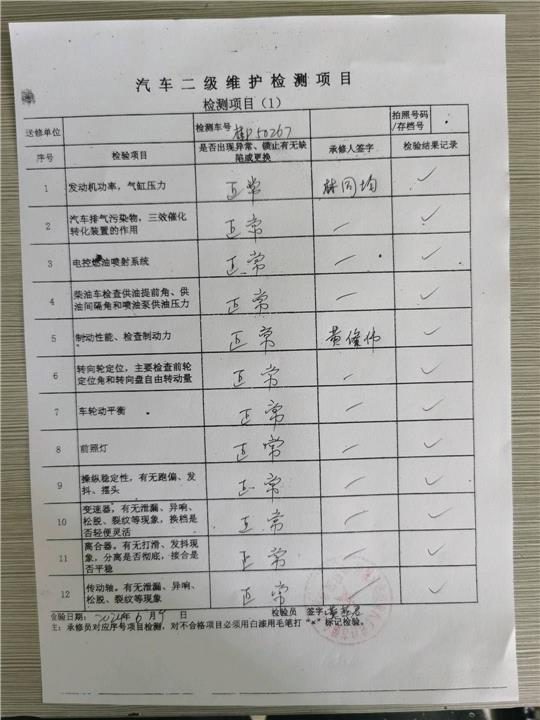 汽车二级维护检测项目
检测项目（1）
送修单位 检测车号 桂P50267 拍照号码/存档号
序号 检验项目 是否出现异常、锁止有无缺陷或更换 承修人签字 检验结果记录
1 发动机功率，气缸压力 正常 ✓
2 汽车排气污染物，三效催化转化装置的作用 正常 — ✓
3 电控燃油喷射系统 正常 — ✓
4 柴油车检查供油提前角、供油间隔角和喷油泵供油压力 正常 — ✓
5 制动性能、检查制动力 正常 黄俊伟 ✓
6 转向轮定位，主要检查前轮定位角和转向盘自由转动量 正常 — ✓
7 车轮动平衡 正常 — ✓
8 前照灯 正常 — ✓
9 操纵稳定性，有无跑偏、发抖、摆头 正常 — ✓
10 变速器，有无泄漏、异响、松脱、裂纹等现象，换档是否轻便灵活 正常 — ✓
11 离合器。有无打滑、发抖现象，分离是否彻底，接合是否平稳 正常 — ✓
12 传动轴。有无泄漏、异响、松脱、裂纹等现象 正常 — ✓
金验日期：2021年6月9日 检验员 签字：
主：承修员对应序号项目检测，对不合格项目必须用白漆用毛笔打“×”标记检验。